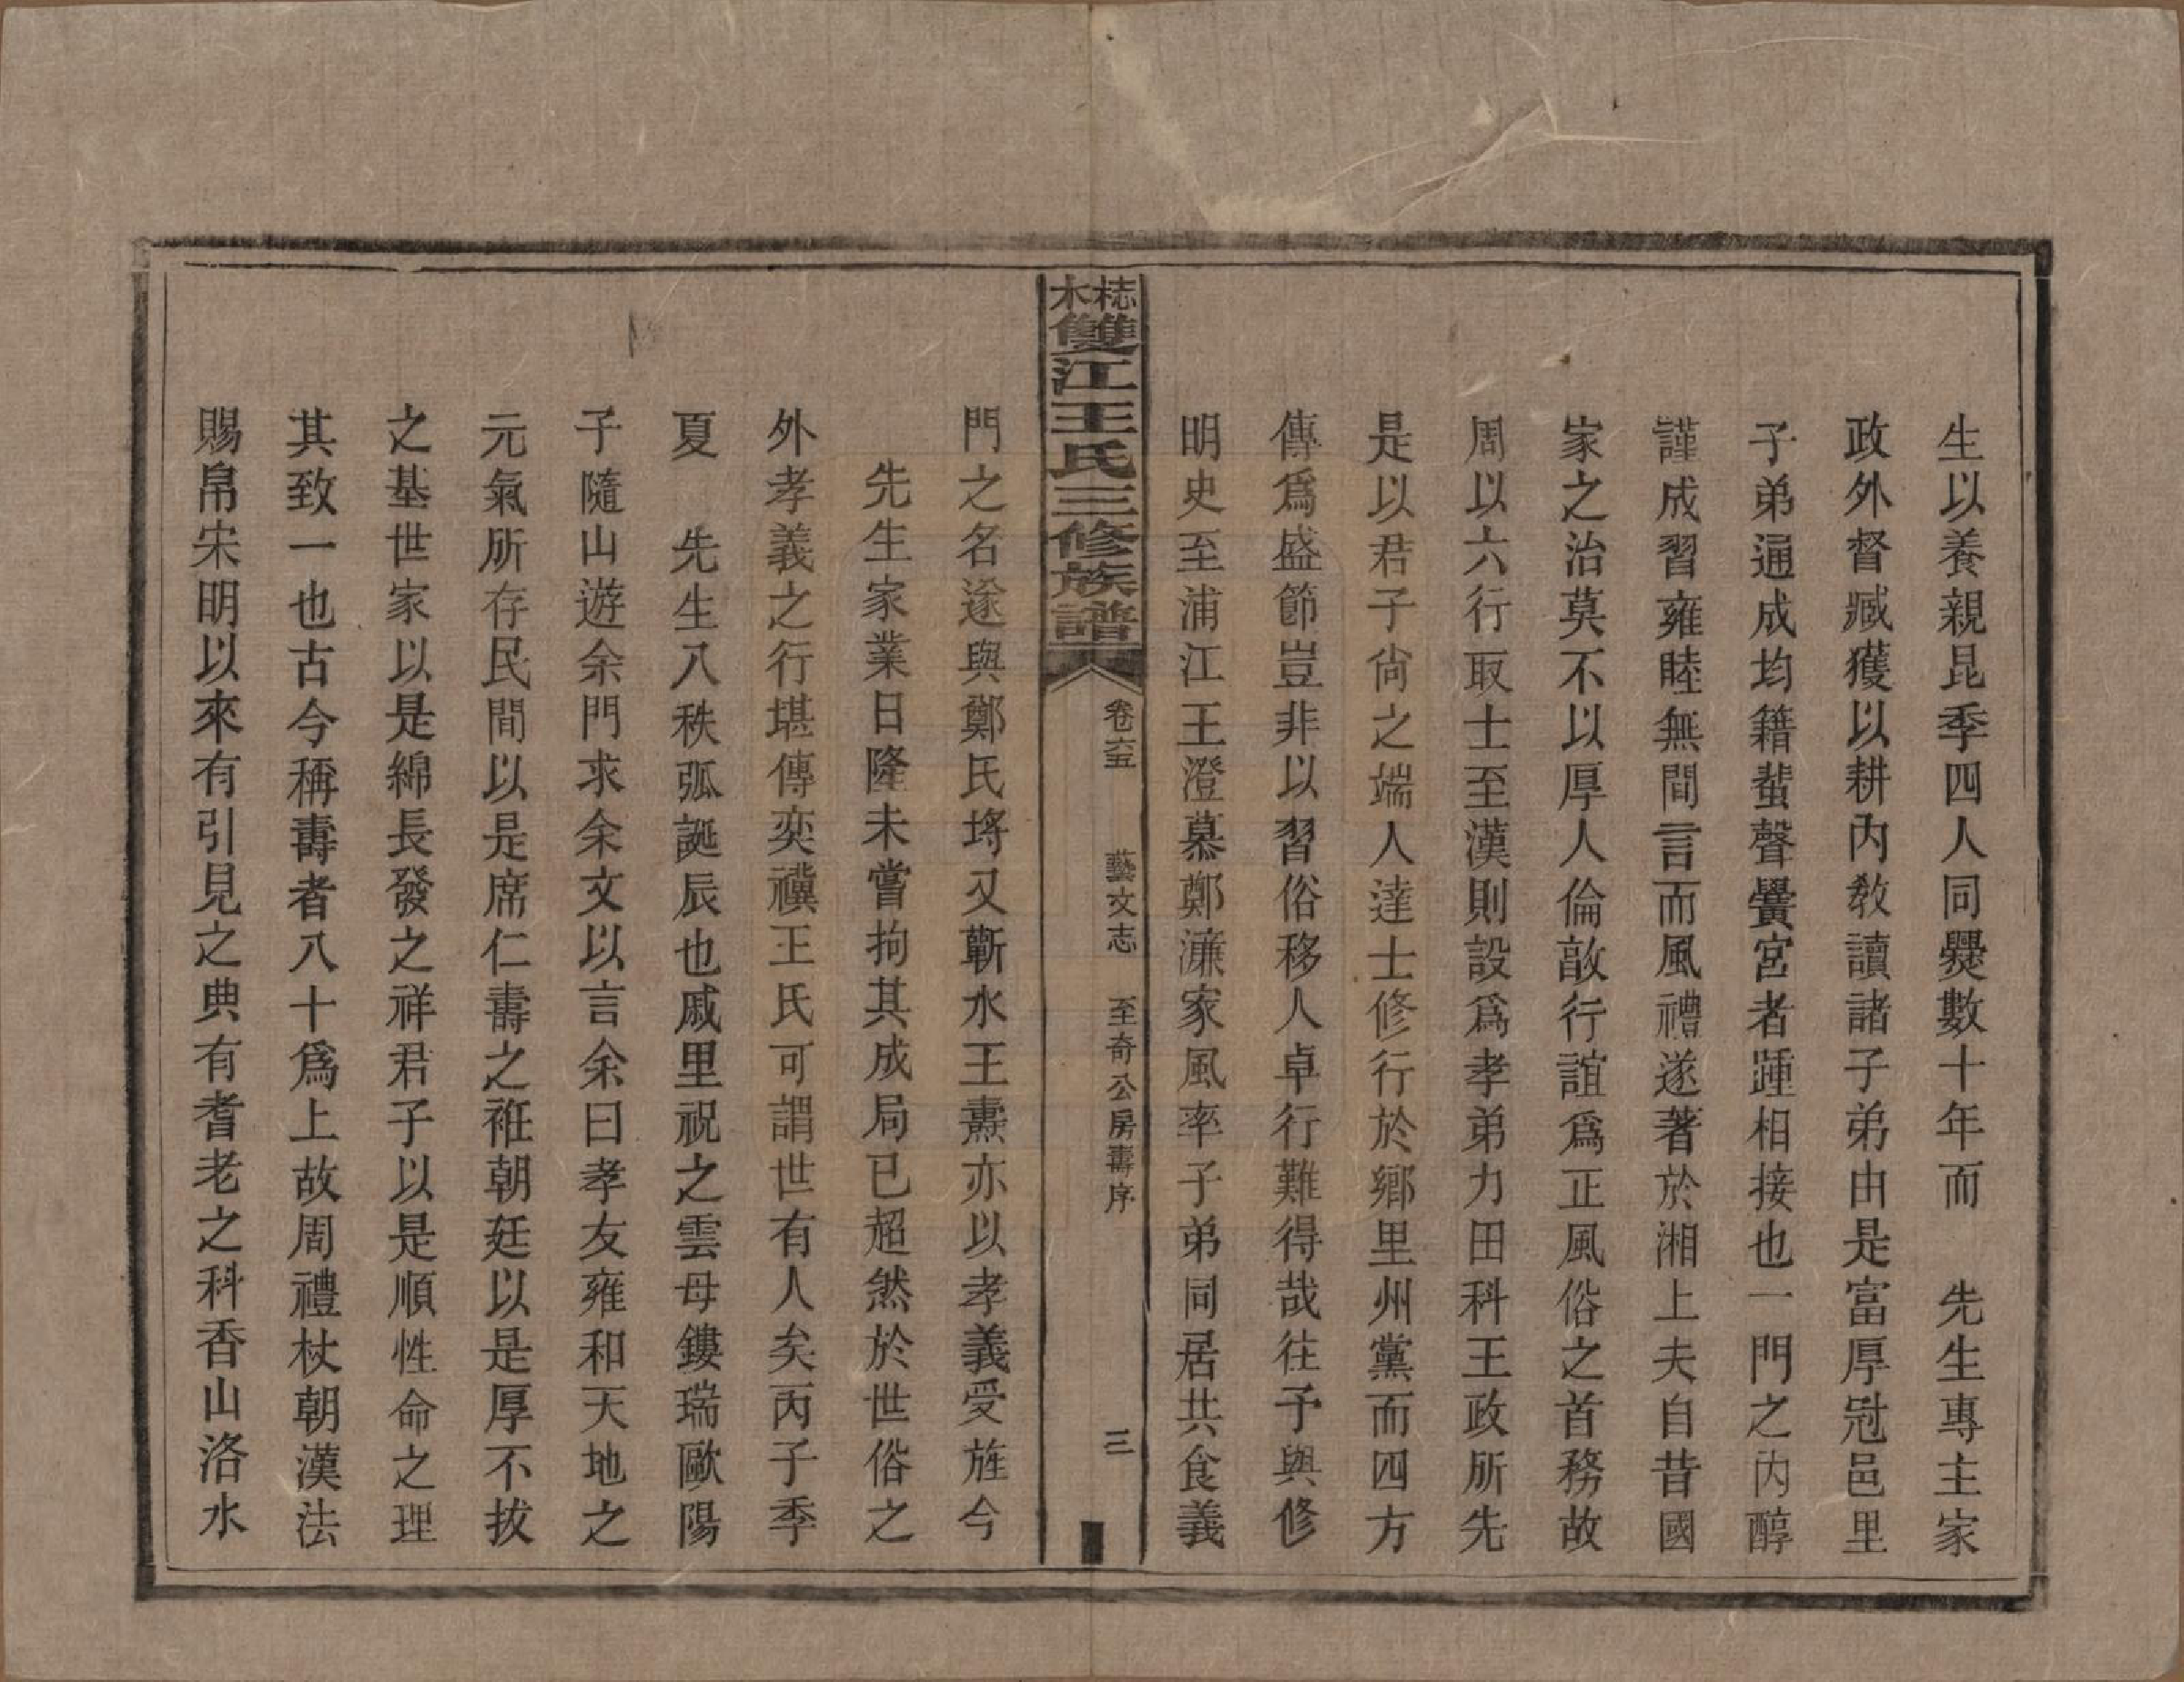 生以養親昆季四人同爨數十年而　先生專主家
政外督臧獲以耕內敎讀諸子弟由是富厚冠邑里
子弟通成均籍蜚聲黌宮者踵相接也一門之內醇
謹成習雍睦無間言而風禮遂著於湘上夫自昔國
家之治莫不以厚人倫敦行誼爲正風俗之首務故
周以六行取士至漢則設爲孝弟力田科王政所先
是以君子尙之端人達士修行於鄉里州黨而四方
傳爲盛節豈非以習俗移人卓行難得哉往予與修
明史至浦江王澄慕鄭濂家風率子弟同居共食義
椿木雙江王氏三修族譜
卷六五　藝文志　至奇公房壽序　三
門之名遂與鄭氏埒又蘄水王燾亦以孝義受旌今
先生家業日隆未嘗拘其成局已超然於世俗之
外孝義之行堪傳奕禩王氏可謂世有人矣丙子季
夏　先生八秩弧誕辰也戚里祝之雲母鏤瑞歐陽
子隨山遊余門求余文以言余曰孝友雍和天地之
元氣所存民間以是席仁壽之祉朝廷以是厚不拔
之基世家以是綿長發之祥君子以是順性命之理
其致一也古今稱壽者八十爲上故周禮杖朝漢法
賜帛宋明以來有引見之典有耆老之科香山洛水